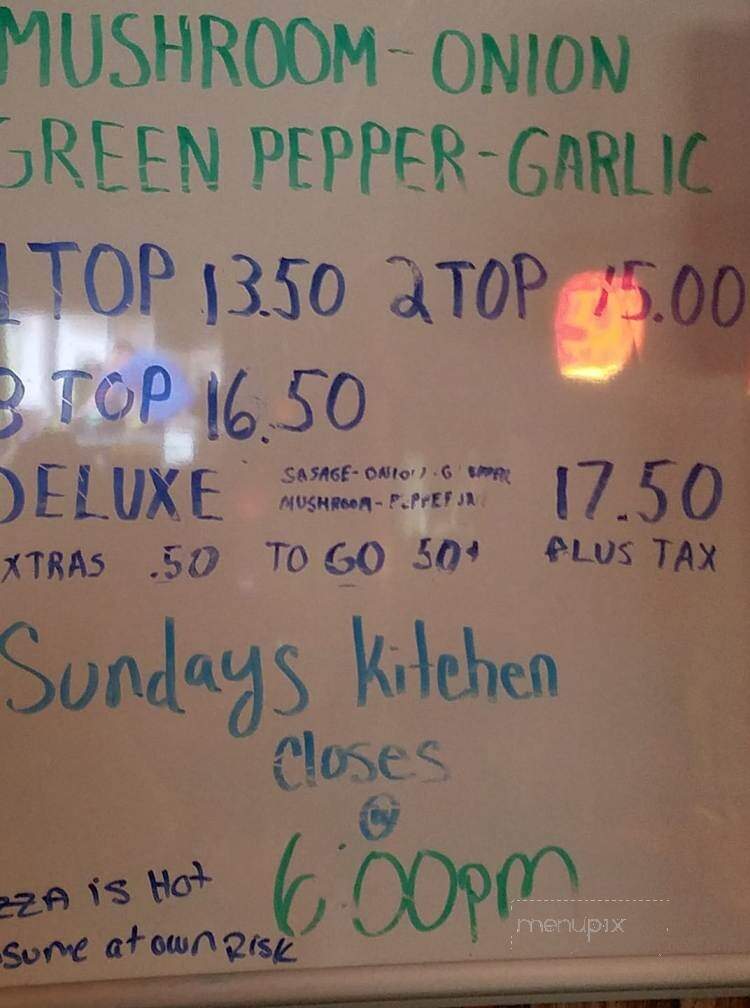 MUSHROOM - ONION
GREEN PEPPER - GARLIC
1 TOP 13.50 2 TOP 15.00
3 TOP 16.50
DELUXE SASAGE - ONION - G 17.50
MUSHROOM -
XTRAS .50 TO GO 50¢ PLUS TAX
Sundays Kitchen
Closes
@
6:00pm
ZZA is Hot
sume at own RISK
menupix